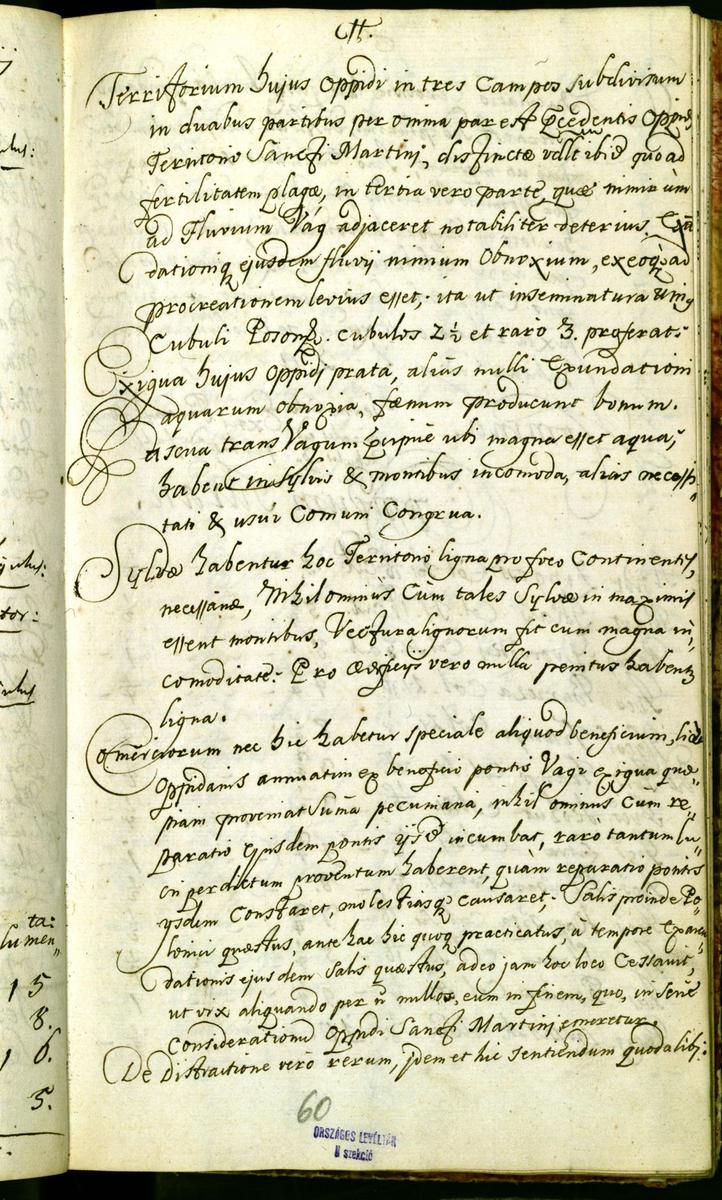 Territorium hujus Oppidi in tres Campos subdivisum
in duabus partibus per omnia par est Prcedentis Oppidi
Territorio Sancti Martini, distinctæ velle ibid quoad
fertilitatem plagæ, in tertia vero parte, quæ nimirùm
ad Fluvium Vág adjaceret notabiliter deterius, Exũ
dationiq ejusdem fluvij nimium Obnoxium, exeoq ad
procreationem levius esset; ita ut inseminatura unig
Cubuli Poson. cubulos 2½ et raro 3. proferat.
Exiqua hujus Oppidi prata, alias nulli Exundationi
aquarum obnoxia, fænum producunt bonum.
Pascua trans Vagum ubi magna esset aqua,
habent in Sylvis & montibus incomoda, alias necessi„
tati & usui Comuni Congrua.
Sylvæ habentur hoc Territorio ligna pro foco Continentes,
necessariæ, Nihilominùs Cum tales Sylvæ in maximis
essent montibus, Vectura lignorum fit cum magna in„
comoditate: Pro ædificijs vero nulla penitus habent
ligna.
Comerciorum nec hic habetur speciale aliquod beneficium, licèt
Oppidanis annuatim ex beneficio pontis Vagi exigua quæ„
piam proveniat Suma pecuniaria, nihil ominus Cùm re„
paratio Ejusdem pontis ijsd incumbat, rarò tantum lu„
cri per dictum proventum haberent, quàm reparatio pontis
ijsdem Constaret, molestiasq causaret; Salis proinde Po„
lonici quæstus, ante hac hic quoq practicatus, à tempore Exaren„
dationis ejusdem Salis quæstus, adeo jam hoc loco Cessavit,
ut vix aliquando per nullos, eum in finem, quo, in Serie
Considerationum Oppidi Sancti Martini, emeretur.
De Distractione verò rerum, jdem et hic sentiendum quod alibj:
ta:
lumen„
1 5
8.
1 6.
5.
60
ORSZÁGOS LEVÉLTÁR
II szekció